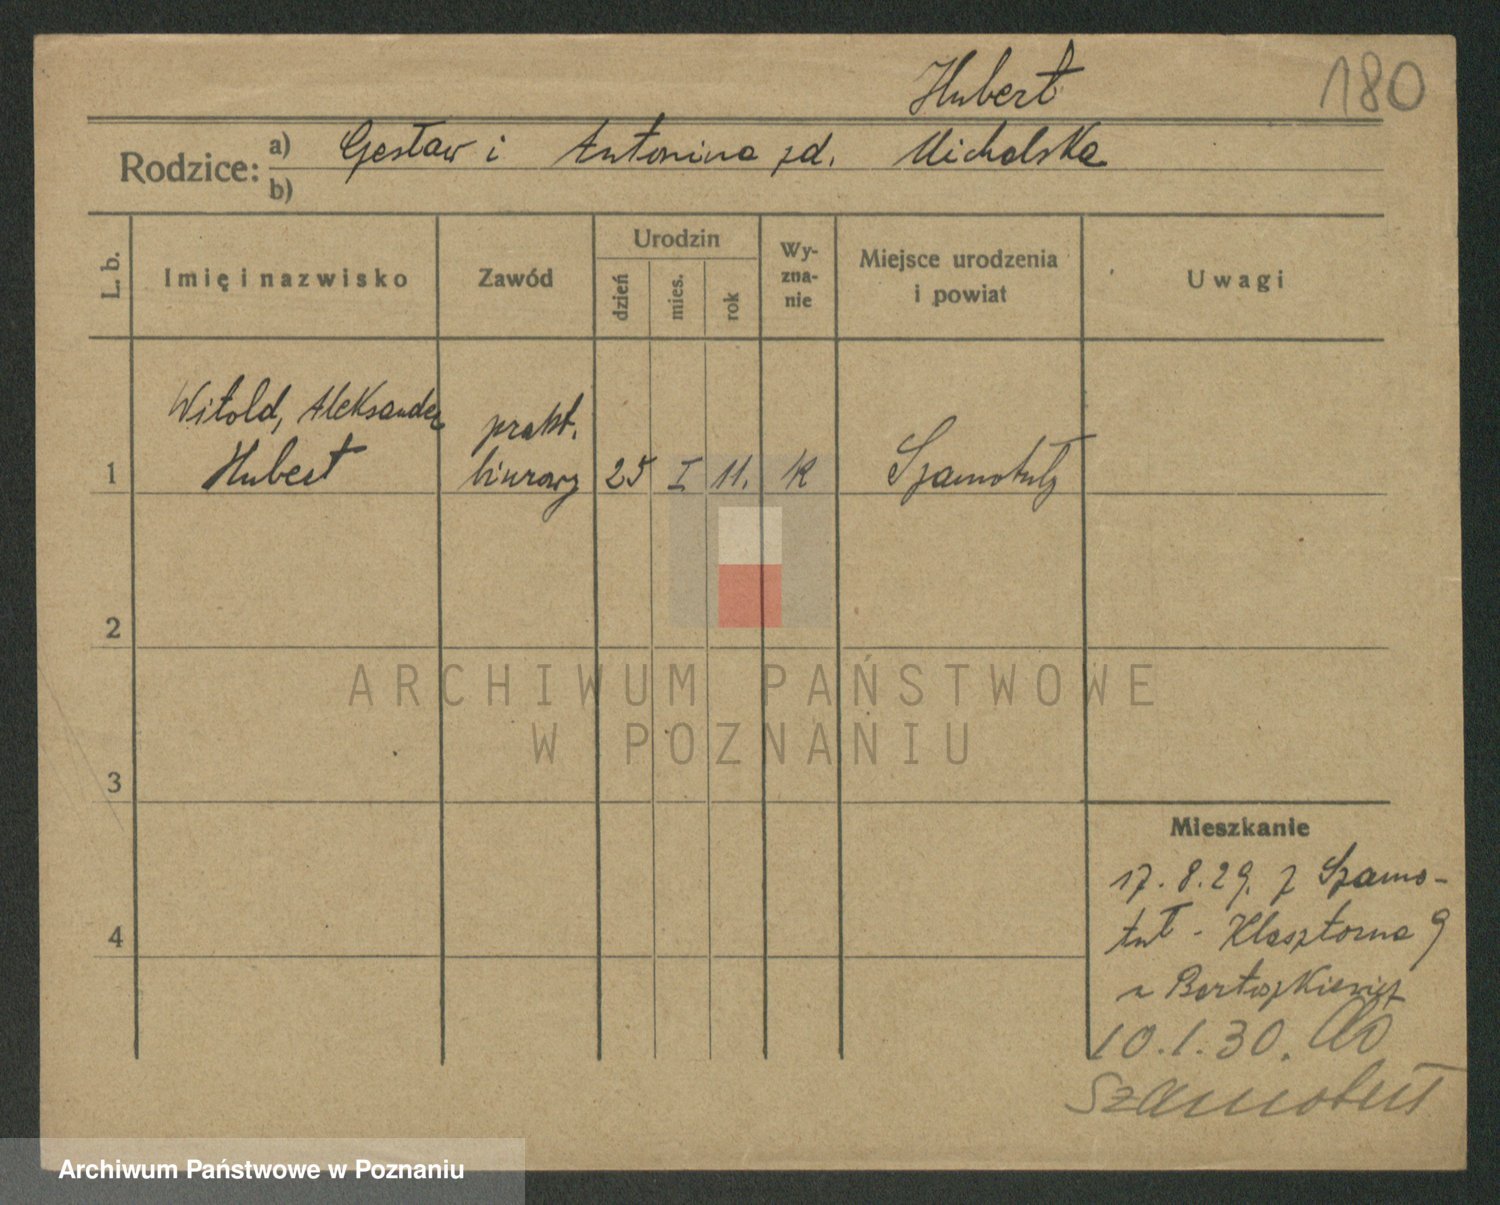 Hubert
180
Rodzice: a) Gesław i Antonina zd. Michalska
b)
L. b. Imię i nazwisko Zawód Urodzin dzień mies. rok Wyznanie Miejsce urodzenia i powiat Uwagi
Witold, Aleksander prakt.
1 Hubert biurowy 25 I 11. k Szamotuły
2
ARCHIWUM PAŃSTWOWE
W POZNANIU
3
Mieszkanie
17. 8. 29. z Szamo-
4 tuł - Klasztorna 9
10. 1. 30. do
Szamotuł
Archiwum Państwowe w Poznaniu